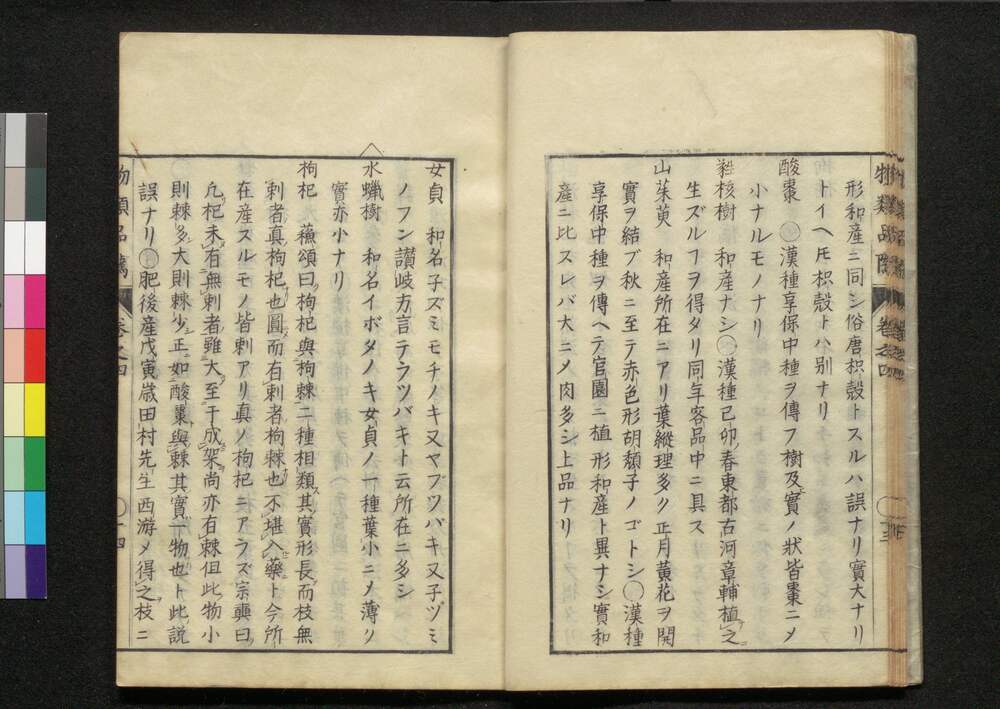 形和産ニ同シ俗唐枳殻トスルハ誤ナリ實大ナリ
トイヘ𪜈枳殻トハ別ナリ
酸棗 ○漢種享保中種ヲ傳フ樹及實ノ狀皆棗ニ〆
小ナルモノナリ
蕤核樹 和産ナシ○漢種已卯春東都古河章輔植之
生ズルヿヲ得タリ同年客品中ニ具ス
山茱萸 和産所在ニアリ葉縱理多ク正月黄花ヲ開
實ヲ結ブ秋ニ至テ赤色形胡頽子ノゴトシ○漢種
享保中種ヲ傳ヘテ官園ニ植形和産ト異ナシ實和
産ニ比スレバ大ニ〆肉多シ上品ナリ
物類品隲 卷之四
女貞 和名子ズミモチノキ又ヤブツバキ又子ヅミ
ノフン讃岐方言テラツバキト云所在ニ多シ
水蠟樹 和名イボタノキ女貞ノ一種葉小ニ〆薄ク
實亦小ナリ
枸杞 蘓頌曰枸杞與枸棘二種相類其實形長而枝無
刺者真枸杞也圓而有刺者枸棘也不堪入藥ト今所
在産スルモノ皆刺アリ真ノ枸杞ニアラズ宗奭曰
凢杞未有無刺者雖大至于成架尚亦有棘但此物小
則棘多大則棘少正如酸棗與棘其實一物也ト此説
誤ナリ○肥後産戊寅歳田村先生西游〆得之枝ニ
物類品隲 卷之四 ○十四